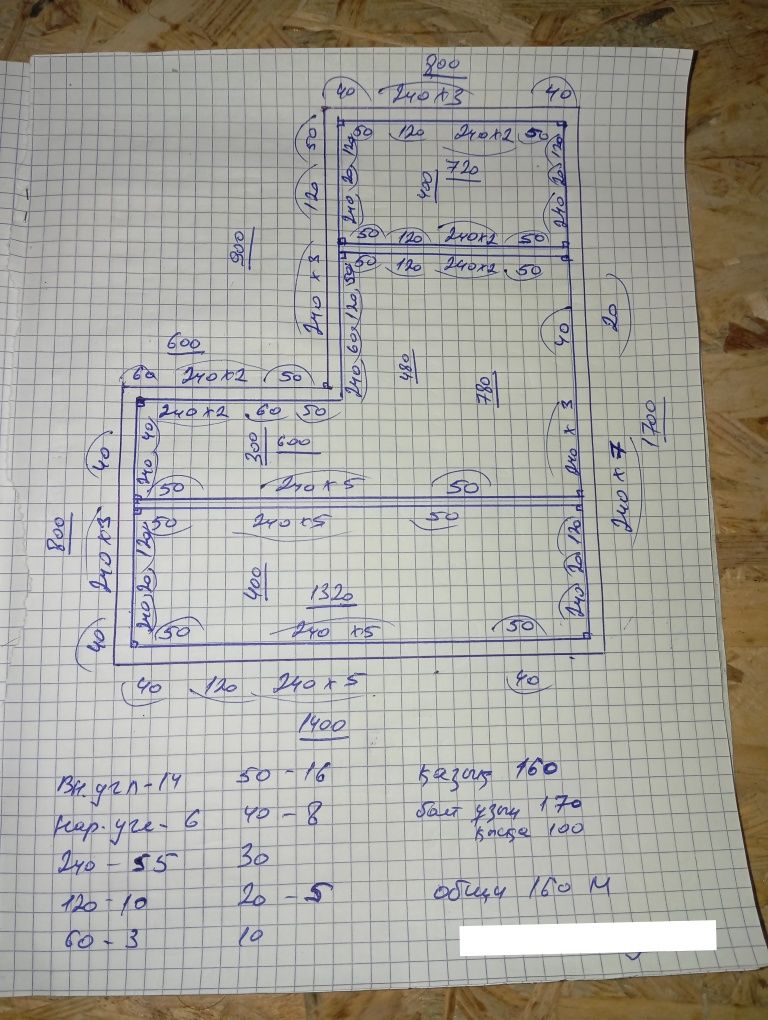 800
40 240 x 3 40
50 120 240x2 50
50
120
240 x 3
900
120
20
240
120
20
240
720
400
50 120 240x2 50
50 120 240x2 50
50
120
60
240
480
780
40
240 x 3
20
240 x 7
1700
600
60 240x2 50
240x2 60 50
40
240
300 600
50 240 x 5 50
50 240x5 50
40
240 x 3
40
800
120
20
240
400
1320
120
20
240
50 240 x5 50
40 120 240 x 5 40
1400
Вн.угл-14 50-16 қазық 160
Нар.угл-6 40-8 болт ұзын 170
қысқа 100
240-55 30
120-10 20-5 общи 160 м
60-3 10